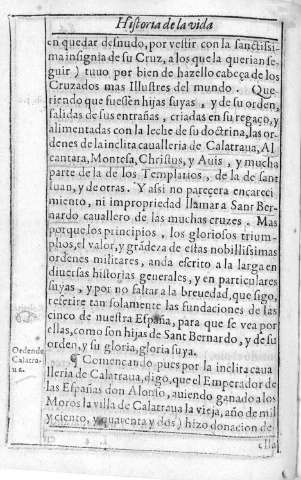 Historia de la vida
en quedar desnudo, por vestir con la sanctissi-
ma insignia de su Cruz, a los que la querian se-
guir) tuuo por bien de hazello cabeça de los
Cruzados mas Illustres del mundo. Que-
riendo que fuessen hijas suyas, y de su orden,
salidas de sus entrañas, criadas en su regaço, y
alimentadas con la leche de su doctrina, las or-
denes de la inclita caualleria de Calatraua, Al
cantara, Montesa, Christus, y Auis, y mucha
parte de la de los Templarios, de la de sant
Iuan, y de otras. Y assi no parecera encareci-
miento, ni impropriedad llamar a Sant Ber-
nardo cauallero de las muchas cruzes. Mas
porque los principios, los gloriosos trium-
phos, el valor, y grãdeza de estas nobilissimas
ordenes militares, anda escrito a la larga en
diuersas historias generales, y en particulares
suyas, y por no faltar a la breuedad, que sigo,
referire tan solamente las fundaciones de las
cinco de nuestra España, para que se vea por
ellas, como son hijas de Sant Bernardo, y de su
orden, y su gloria, gloria suya.
Orden de
Calatra-
ua.
¶ Comencando pues por la inclita caua
lleria de Calatraua, digo, que el Emperador de
las Españas don Alonso, auiendo ganado a los
Moros la villa de Calatraua la vieja, año de mil
y ciento, y quarenta y dos) hizo donacion de